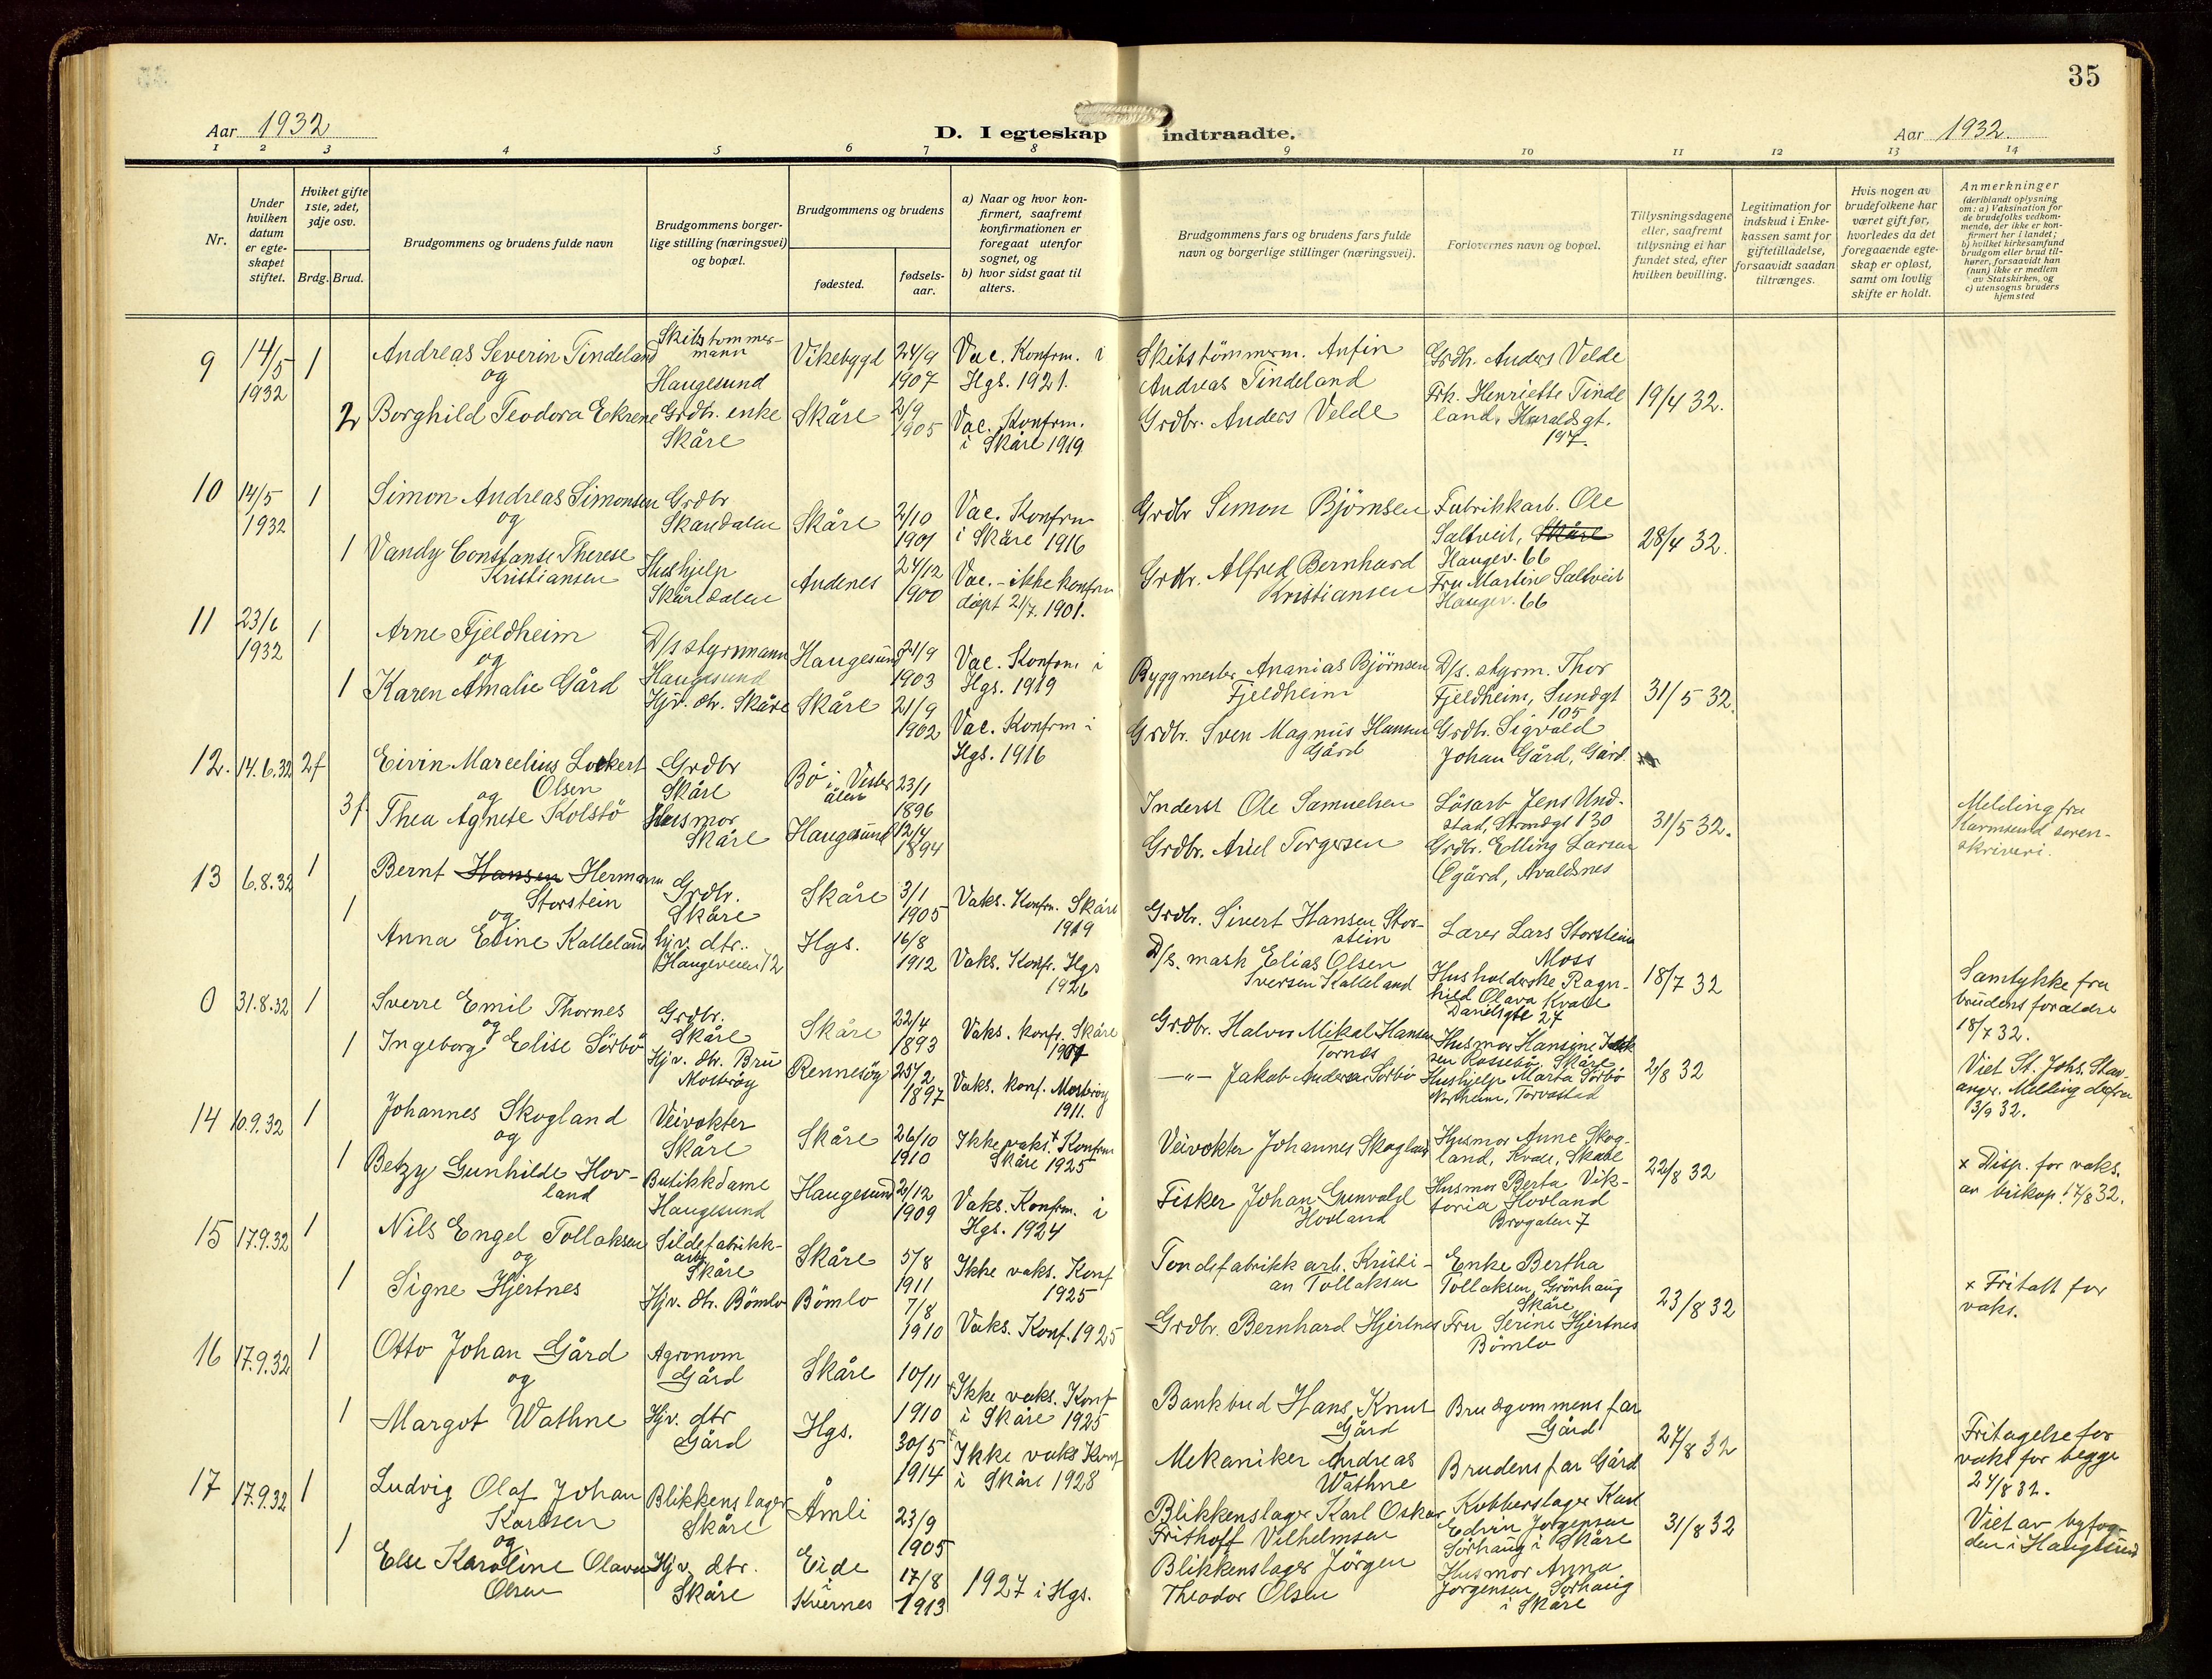 35
Aar 1932
D. I egteskap indtraadte.
Aar 1932.
1 2 3 4 5 6 7 8 9 10 11 12 13 14
Nr.
Under hvilken datum er egte-skapet stiftet.
Hviket gifte 1ste, 2det, 3dje osv.
Brdg. Brud.
Brudgommens og brudens fulde navn
Brudgommens borger-lige stilling (næringsvei) og bopæl.
Brudgommens og brudens
fødested.
fødsels-aar.
a) Naar og hvor kon-firmert, saafremt konfirmationen er foregaat utenfor sognet, og
b) hvor sidst gaat til alters.
Brudgommens fars og brudens fars fulde navn og borgerlige stillinger (næringsvei).
Forlovernes navn og bopæl.
Tillysningsdagene eller, saafremt tillysning ei har fundet sted, efter hvilken bevilling.
Legitimation for indskud i Enke-kassen samt for giftetilladelse, forsaavidt saadan tiltrænges.
Hvis nogen av brudefolkene har været gift før, hvorledes da det foregaaende egte-skap er opløst, samt om lovlig skifte er holdt.
Anmerkninger (deriblandt oplysning om: a) Vaksination for de brudefolks vedkom-mende, der ikke er kon-firmert her i landet; b) hvilket kirkesamfund brudgom eller brud til-hører, forsaavidt han (hun) ikke er medlem av Statskirken, og c) utensogns bruders hjemsted
9 14/5 1932 1 Andreas Severin Tindeland Skibstommer-mann Haugesund Vikebygd 24/9 1907 Vac. Konfrm. i Hgs. 1921. Skibstömmerm. Anfin Andreas Tindeland Grdb. Anders Velde
og
2 Borghild Teodora Ekrene Grdbr. enke Skåre Skåre 2/9 1905 Vac. Konfrm. i Skåre 1919 Grdbr. Anders Velde Frk. Henriette Tindeland, Haraldsgt. 197. 19/4 32.
10 14/5 1932 1 Simon Andreas Simonsen Grdbr Skåredalen Skåre 2/10 1901 Vac. Konfrm i Skåre 1916 Grdbr Simon Björnsen Fabrikkarb. Ole Saltveit, Skåre Haugev. 66
og
1 Vandy Constanse Therese Kristiansen Hushjelp Skåredalen Andenes 24/12 1900 Vac. - ikke konfrm döpt 21/7. 1901. Grdbr. Alfred Bernhard Kristiansen Fru Martine Saltveit Haugev. 66 28/4 32.
11 23/6 1932 1 Arne Fjeldheim D/s styrmann Haugesund Haugesund 24/9 1903 Vac. Konfrm i Hgs. 1919 Byggmester Ananias Björnsen Fjeldheim D/s. styrm. Thor Fjeldheim, Sundgt 105
og
1 Karen Amalie Gård Hjv. dtr. Skåre Skåre 21/9 1902 Vac. Konfrm i Hgs. 1916 Grdbr. Sven Magnus Hansen Gård Grdbr. Sigvald Johan Gård, Gård. 31/5 32.
12. 14.6.32 2f Eivin Marcelius Lockert Olsen Grdbr Skåre Bö i Vesterålen 23/1 1896 Inderst Ole Samuelsen Lösarb Jens Undstad, Strandgt 130
og
3f Thea Agnete Kolstö Husmor Skåre Haugesund 12/4 1894 Grdbr. Ariel Torgersen Grdbr. Elling Larsen Ögård, Avaldsnes 31/5 32. Melding fra Karmsund soren-skriveri.
13 6.8.32 1 Bernt Hansen Hermann Storstein Grdbr. Skåre Skåre 3/1 1905 Vaks. Konfr. Skåre 1919 Grdbr. Sivert Hansen Storstein Lærer Lars Storstein Moss
og
1 Anna Edine Kalleland hjv. dtr. Haugeveien 12 Hgs. 16/8 1912 Vaks. Konfr. Hgs 1926 D/s. mask Elias Olsen Sversen Kalleland Husholderske Ragnhild Olava Kvale Davidsgt 27 18/7 32 Samtykke fra brudens foreldre 18/7 32.
0 31.8.32 1 Sverre Emil Thornes Grdbr. Skåre Skåre 22/4 1893 Vaks. konfr. Skåre 1907 Grdbr. Halvor Mikal Hansen Tornes Husmor Hansine Rossebö, Skåre
og
1 Ingeborg Elise Sörbö Hjv. dtr. Bru Mosteröy Rennesöy 25/2 1897 Vaks. konf. Mosteröy 1911. —"— Jakob Andersen Sörbö Hushjelp Marta Sörbö Norheim, Torvastad 2/8 32 Viet St. Johs. Stavanger. Melding derfra 3/9 32.
14 10.9.32 1 Johannes Skogland Veivokter Skåre Skåre 26/10 1910 Ikke vaks.+ Konfrm Skåre 1925 Veivokter Johannes Skogland Husmor Anne Skogland, Kvale, Skåre
og
1 Betzy Gunhilde Hovland Butikkdame Haugesund Haugesund 2/12 1909 Vaks. Konfrm. i Hgs. 1924 Fisker Johan Gunvald Hovland Husmor Berta Viktoria Hovland Brogaten 7 22/8 32 x Disp. for vaks. av biskop. 17/8 32.
15 17.9.32 1 Nils Engel Tollaksen Sildefabrikk-arb Skåre Skåre 5/8 1911 Ikke vaks. Konf 1925 Tondefabrikkarb. Kristian Tollaksen Enke Bertha Tollaksen, Grönhaug Skåre
og
1 Signe Hjertnes Hjv. dtr. Bömlo Bömlo 7/8 1910 Vaks. Konf. 1925 Grdbr. Bernhard Hjertnes Fru Serine Hjertnes Bömlo 23/8 32 x Fritatt for vaks.
16 17.9.32 1 Otto Johan Gård Agronom Gård Skåre 10/11 1910 x Ikke vaks. Konf i Skåre 1925 Bankbud Hans Knut Gård Brudgommens far Gård
og
1 Margot Wathne Hjv. dtr Gård Hgs. 30/5 1914 x Ikke vaks Konf i Skåre 1928 Mekaniker Andreas Wathne Brudens far Gård 27/8 32 Fritagelse for vaks for begge 24/8 32.
17 17.9.32 1 Ludvig Olaf Johan Karlsen Blikkenslager Skåre Åmli 23/9 1905 Blikkenslager Karl Oskar Frithoff Vilhelmsen Kobberslager Karl Edvin Jørgensen Sørhaug i Skåre
og
1 Else Karoline Olava Olsen Hjv. dtr. Skåre Eide i Kvernes 17/8 1913 1927 i Hgs. Blikkenslager Jörgen Theodor Olsen Husmor Anna Jørgensen, Sørhaug i Skåre 31/8 32 Viet av byfogden i Haugesund